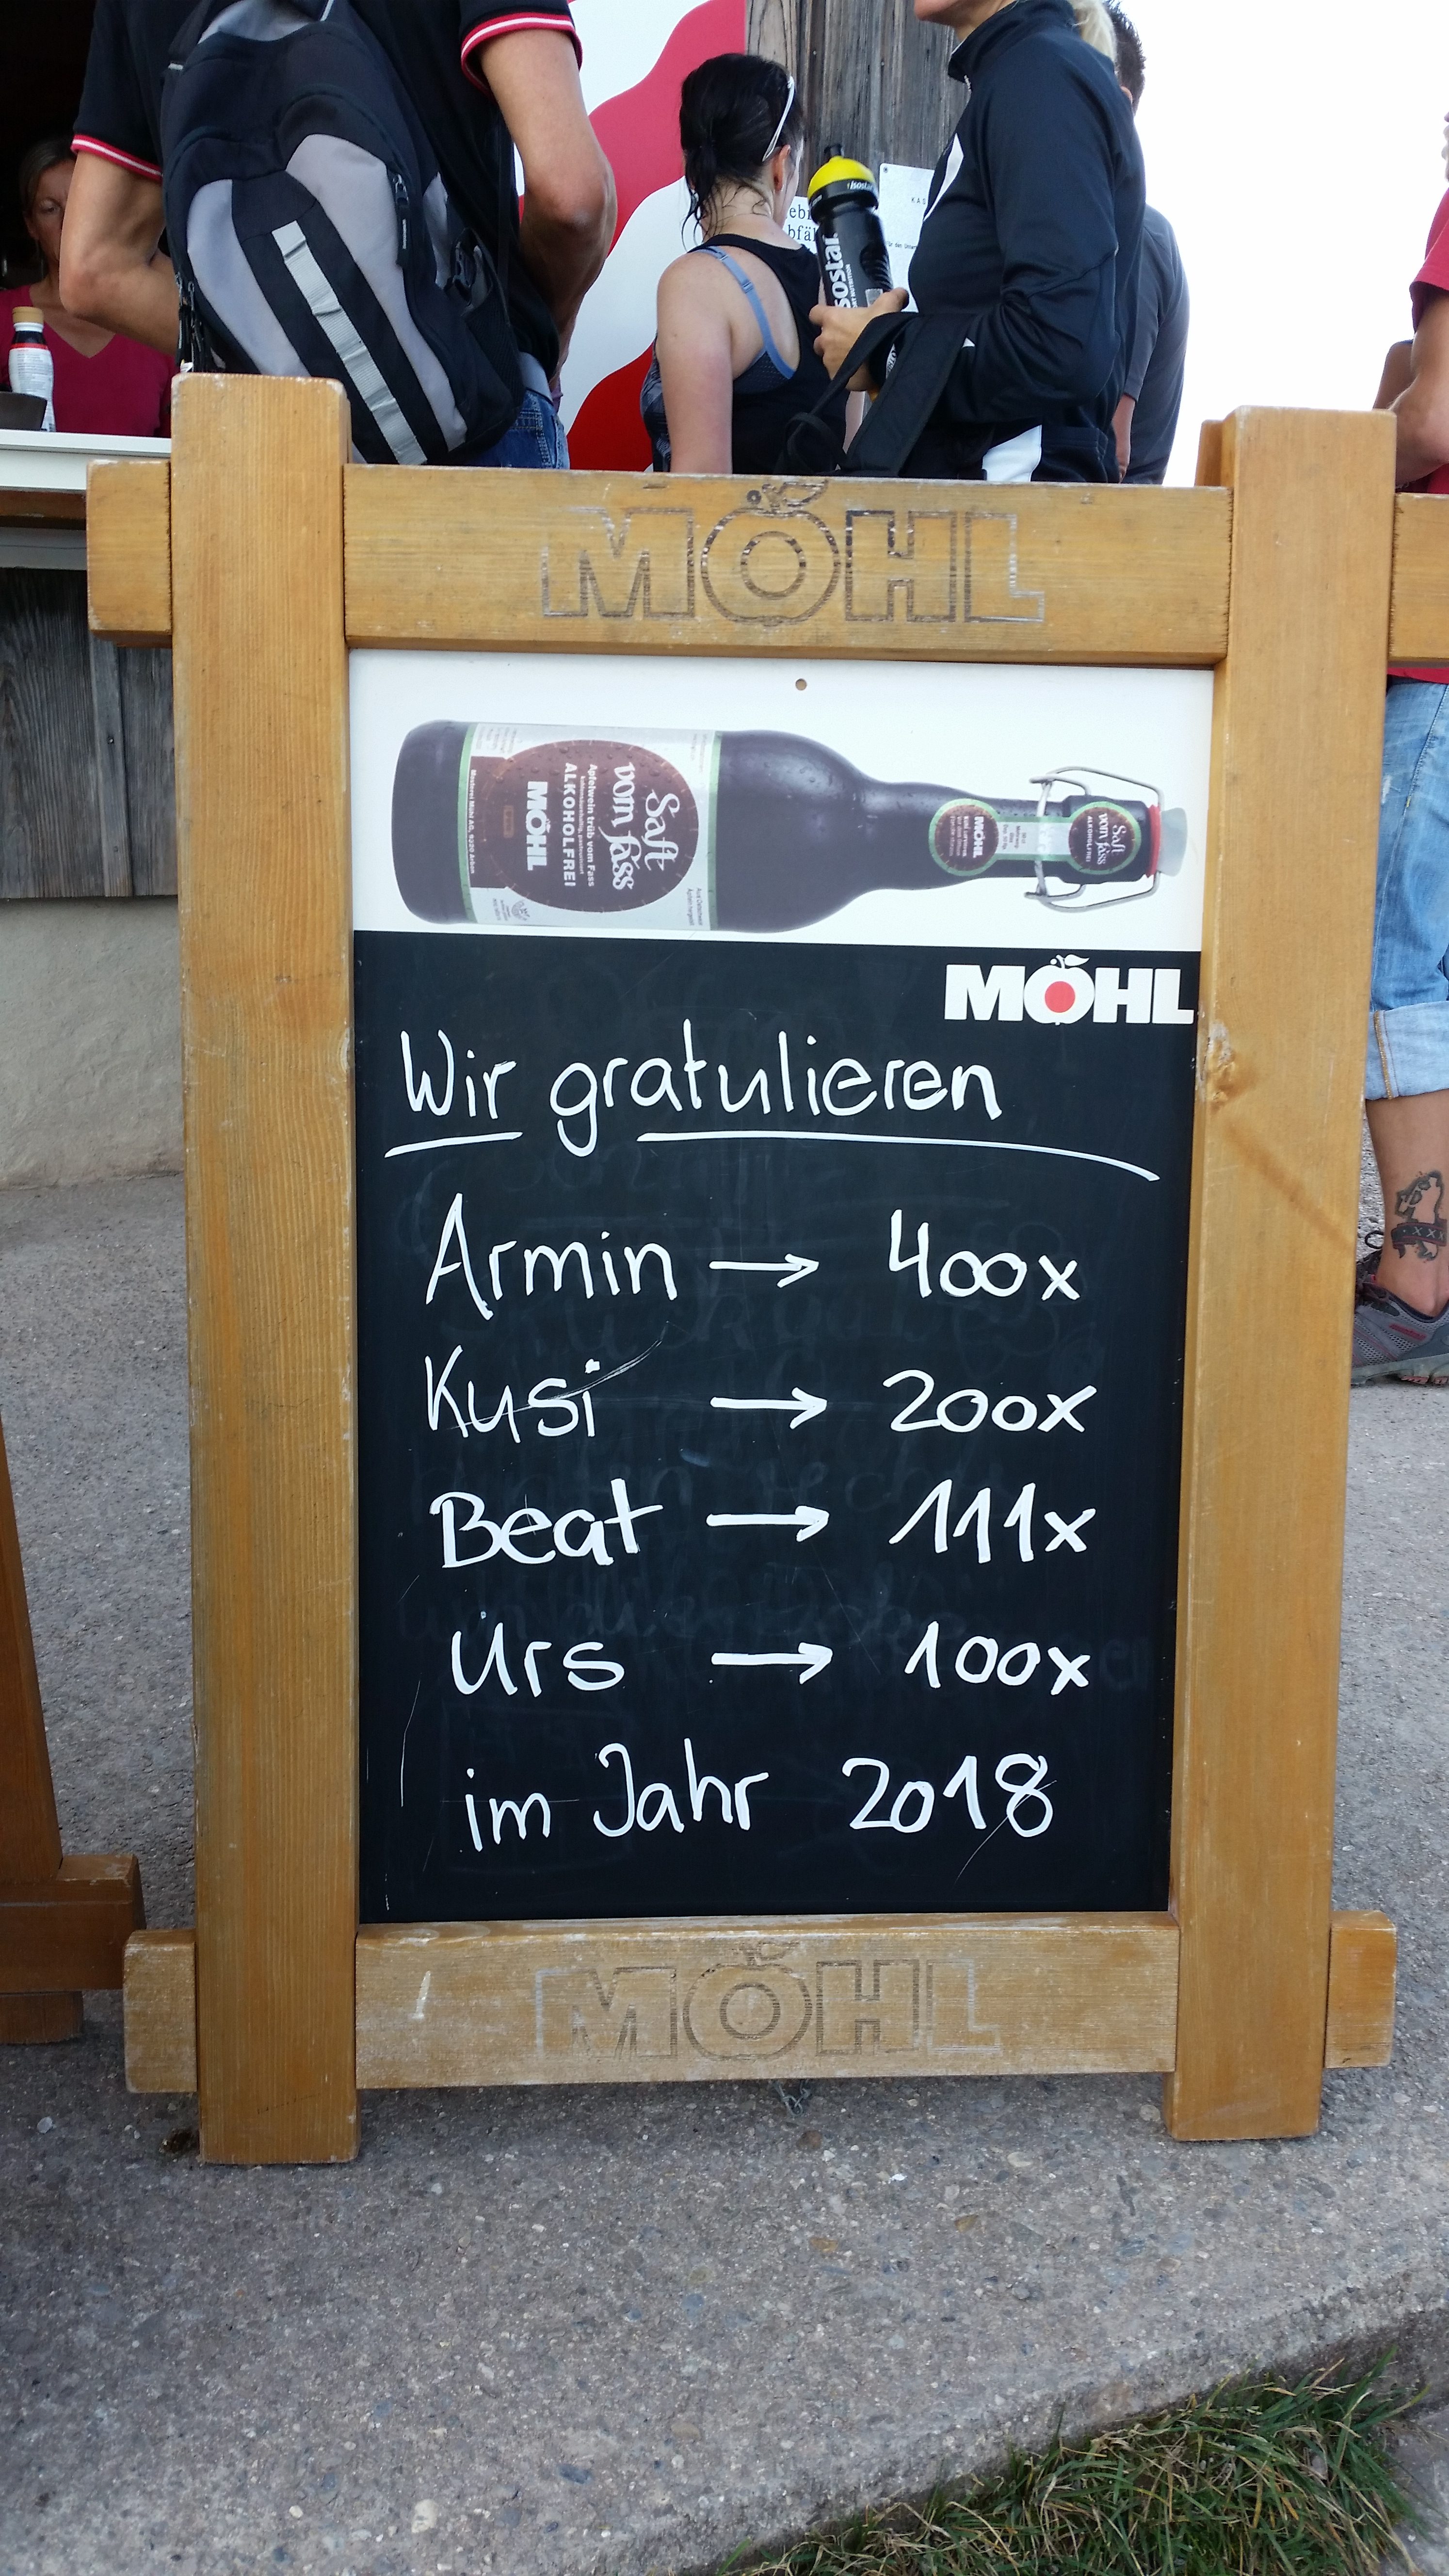 isostar
isostar
KAS
MÖHL
Saft
vom Fass
Apfelwein trüb vom Fass
ALKOHOLFREI
MÖHL
MÖHL
Saft
vom Fass
ALKOHOLFREI
MÖHL
Wir gratulieren
Armin → 400x
Kusi → 200x
Beat → 111x
Urs → 100x
im Jahr 2018
MÖHL